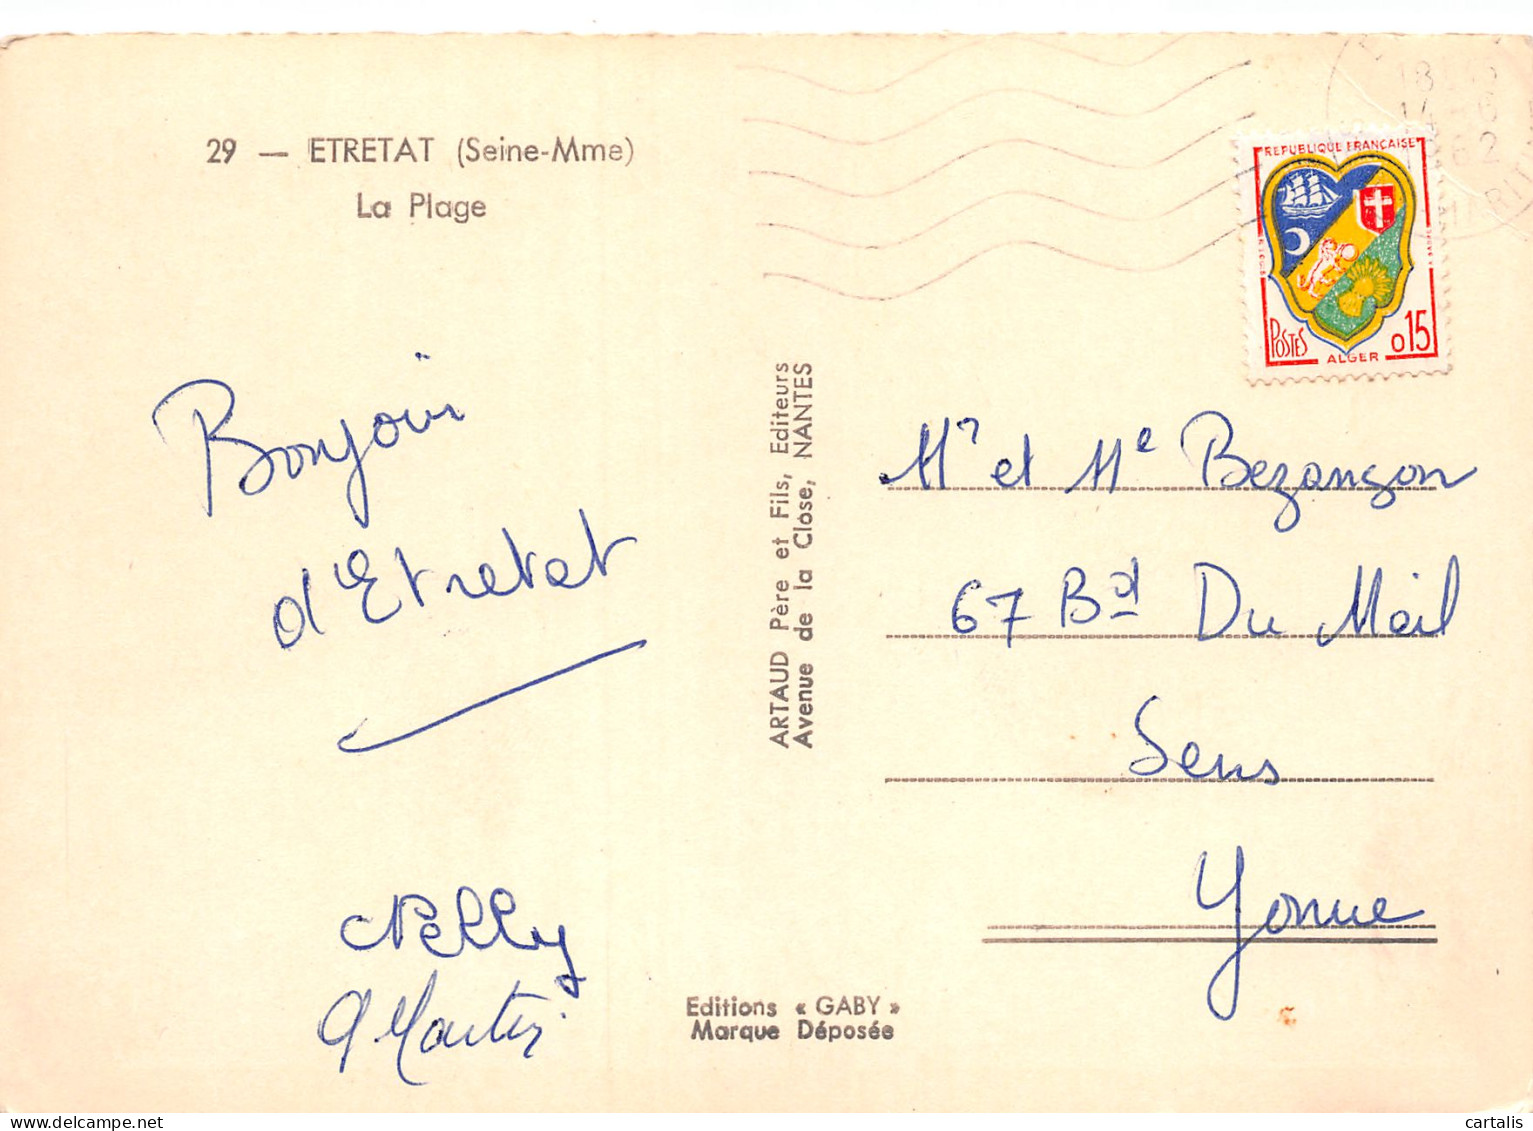 29 — ETRETAT (Seine-Mme)
La Plage
Bonjour
d'Etretat
Nelly
ARTAUD Père et Fils, Editeurs
Avenue de la Close, NANTES
Editions « GABY »
Marque Déposée
18
14-8
1962
REPUBLIQUE FRANÇAISE
POSTES
ALGER
0,15
Mr et Me Bezançon
67 Bd Du Mail
Sens
Yonne
cartalis